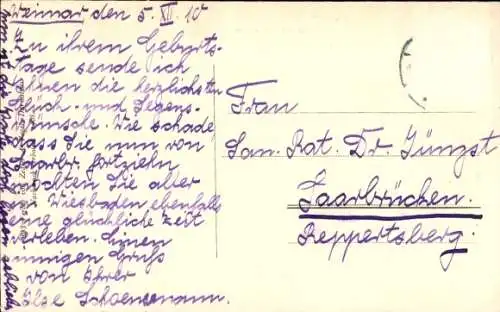 Weimar den 5. XII. 10
Zu ihrem Geburts-
tage sende ich
Ihnen die herzlichsten
Glück- und Segens-
wünsche. Wie schade
dass Sie nun von
Saarbr. fortziehn
Möchten Sie aber
Wiesbaden ebenfalls
eine glückliche Zeit
verleben. Einen
innigen Gruss
von Ihrer
Ilse Schoenemann.
Frau
San. Rat. Dr. Jüngst
Saarbrücken.
Reppertsberg.